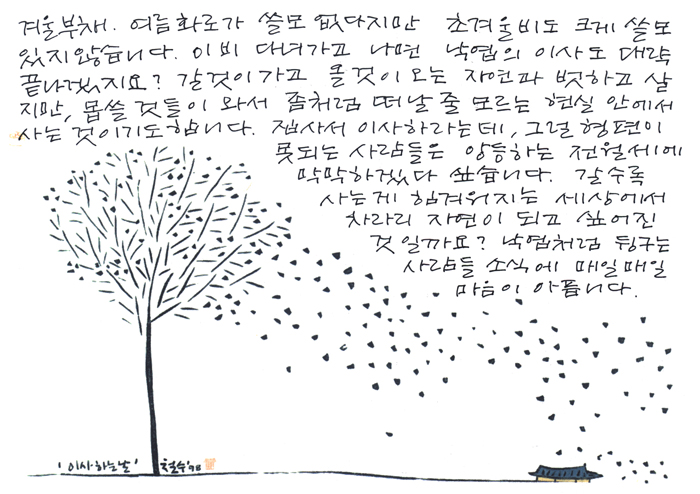 겨울부채. 여름화로가 쓸모 없다지만 초겨울비도 크게 쓸모
있지않습니다. 이 비 다녀가고 나면 낙엽의 이사도 대략
끝나겠지요? 갈것이 가고 올것이 오는 자연과 벗하고 살
지만, 몹쓸 것들이 와서 좀처럼 떠날 줄 모르는 현실 안에서
사는 것이기도합니다. 집사서 이사하라는데, 그럴 형편이
못되는 사람들은 앙등하는 전월세에
막막하겠다 싶습니다. 갈수록
사는게 힘겨워지는 세상에서
차라리 자연이 되고 싶어진
것일까요? 낙엽처럼 뒹구는
사람들 소식에 매일매일
마음이 아픕니다.
'이사하는날' 철수'98